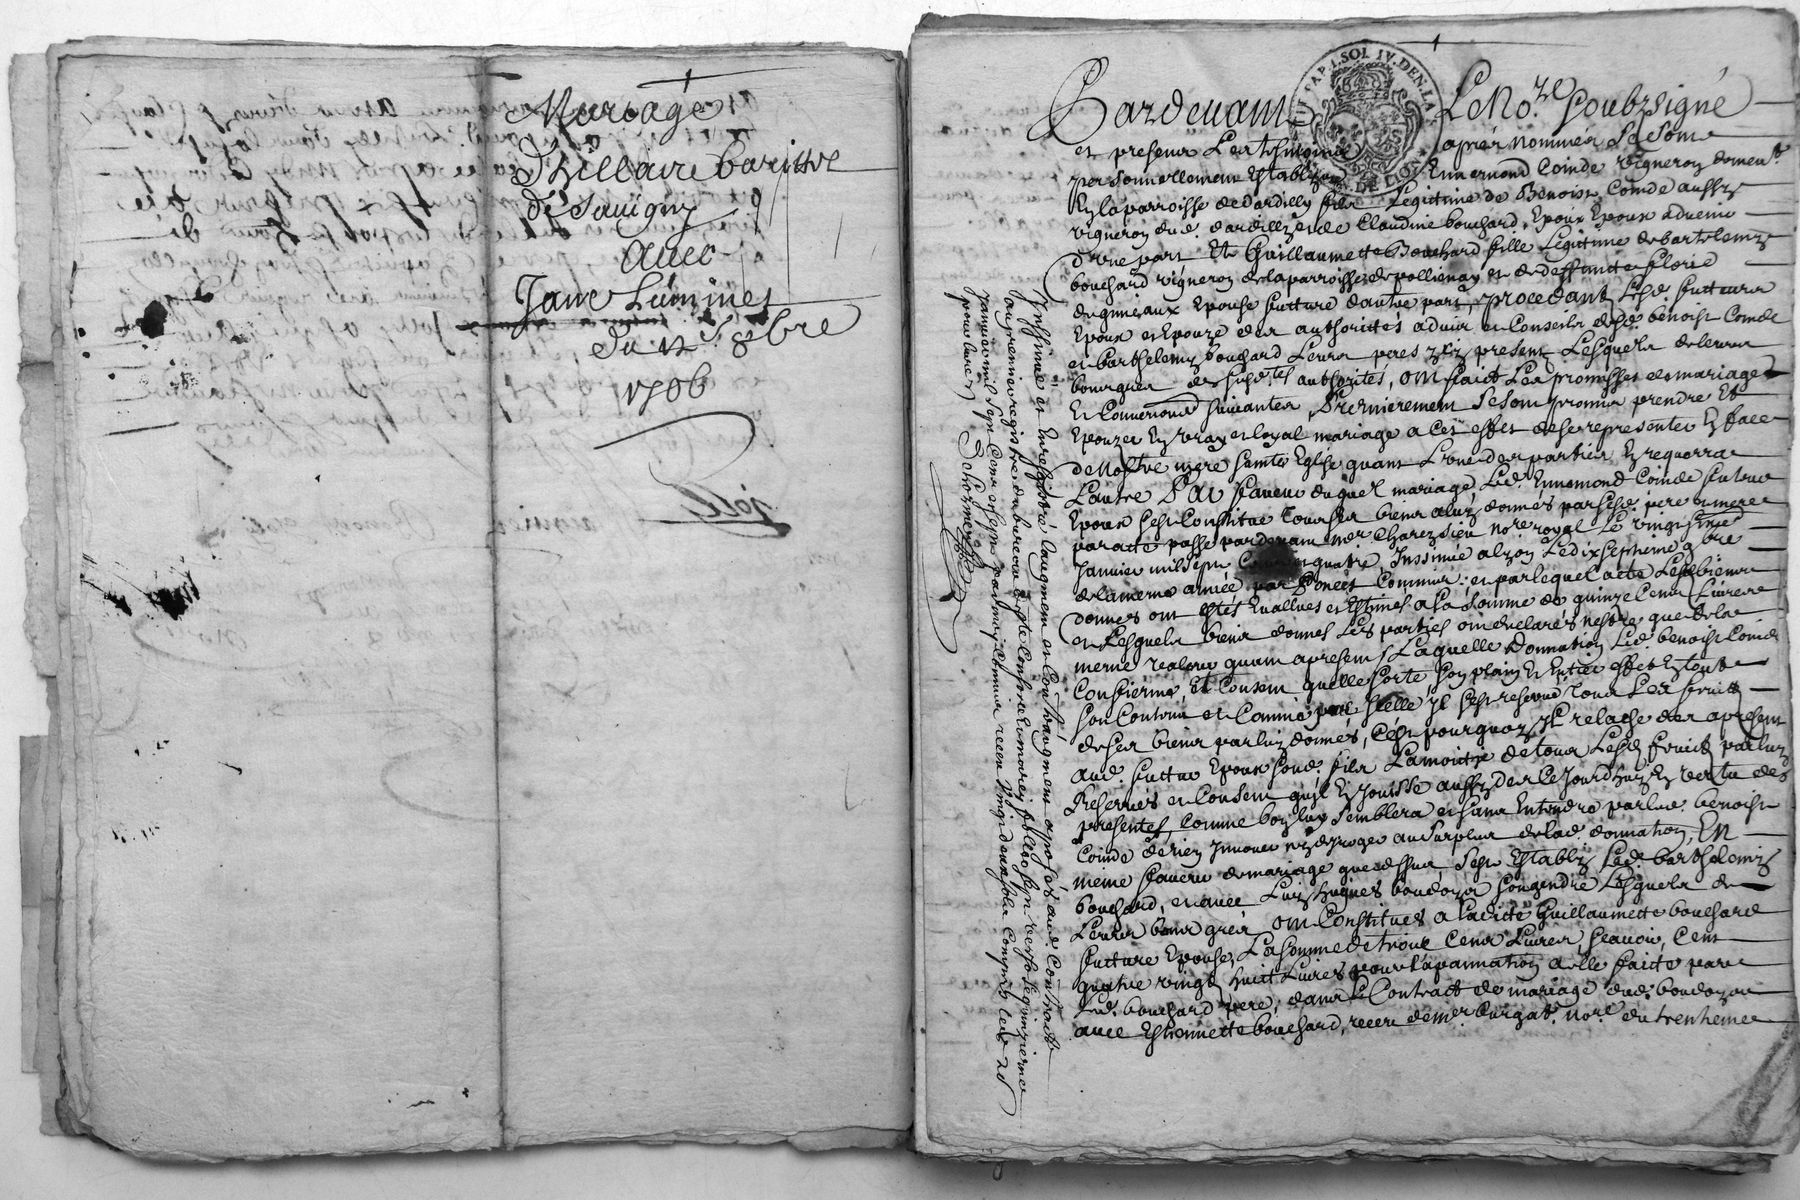 Mariage
D'hillaire barittel
de Savigny
avec
Jane Lumines
du 12e 8bre
1706
PAP. I. SOL IV. DEN. LA
DE LION
Pardevant Le Nore. soubzsigné
et presens Les tesmoings apres nommés se sont
personnellement Establis Ennemond Coinde vigneron demeut.
En la parroisse de dardilly fils Legitime de Benoist Coinde aussy
vigneron dud. dardilly et de Claudine bouchard, Epoux Epoux advenir
d'une part Et Guillaumette Bouchard fille Legitime de bartelemy
bouchard vigneron de la parroisse de pollienay et de deffuntte
Epouse future d'autre part, procedants Lesd. futturs
Epoux et Epouze des authorittés advis et Conseils desd. benoist Coinde
et barthelemy bouchard Leurs peres icy presents Lesquels de leurs
authorités, ont faict Les promesses de mariage
et Conventions suivantes, Premierement se sont promis prendre Et
Epouzer En vray et loyal mariage a Cet effet de se representer En face
de Nostre mere sainte Eglise quant L'une des parties En requerra
L'autre Et au faveur duquel mariage Led. Ennemond Coinde futur
Epoux s'est Constitué tous ses biens a luy donnés par sesd. pere et mere
par acte passé pardevant mer Charezieu nore royal Le vingtsixe
Janvier mil sept Cent quatre, Inssinué a lyon Le dix septieme 9bre
de la meme année par Commis: et par lequel acte Lesd. biens
donnés ont estés Evallues et Estimés a la somme de quinze Cent Livres
et Lesquels biens donnés Les parties ont declarés n'estre que de la
meme valeur quant a present, Laquelle donnation Led. benoist Coinde
Confirme Et Consent quelle sorte son plain et Entier effet En tout
son Contenu et Comme par Icelle Il s'est reservé tous Les fruits
de ses biens par luy donnés, C'est pourquoy Il relache des a present
aud. futtur Epoux sond. fils La moitié de tous Lesd. fruits par luy
Reservés et Consent qu'il En Jouisse aussy des Ce Jourdhuy En vertu des
presentes, Comme bon luy semblera et sans Entendre par led. benoist
Coinde de rien Innover ny deroger au surplus de lad. donnation, En
meme faveur de mariage que dessus, s'est Establis Led. barthelemy
bouchard, et avec Luy hugues boudoyon son gendre Lesquels de
Leurs bons grés ont Constitués a laditte Guillaumette bouchard
future Epouse, La somme de trois Cent Livres, sçavoir, Cent
quatre vingt huict Livres pour l'apannation a elle faicte par
Led. bouchard pere, dans le Contract de mariage dud. boudoyon
avec Estiennette bouchard, receu de mer burgat. nore. du trentieme
Inssinué et Enregistré, laugment et Contraugment apposés aud. Contract
au premier registre du bureau de
Janvier mil sept Cent et sept par moy Commis receu vingt deux sols Compris les 2s
pour livre